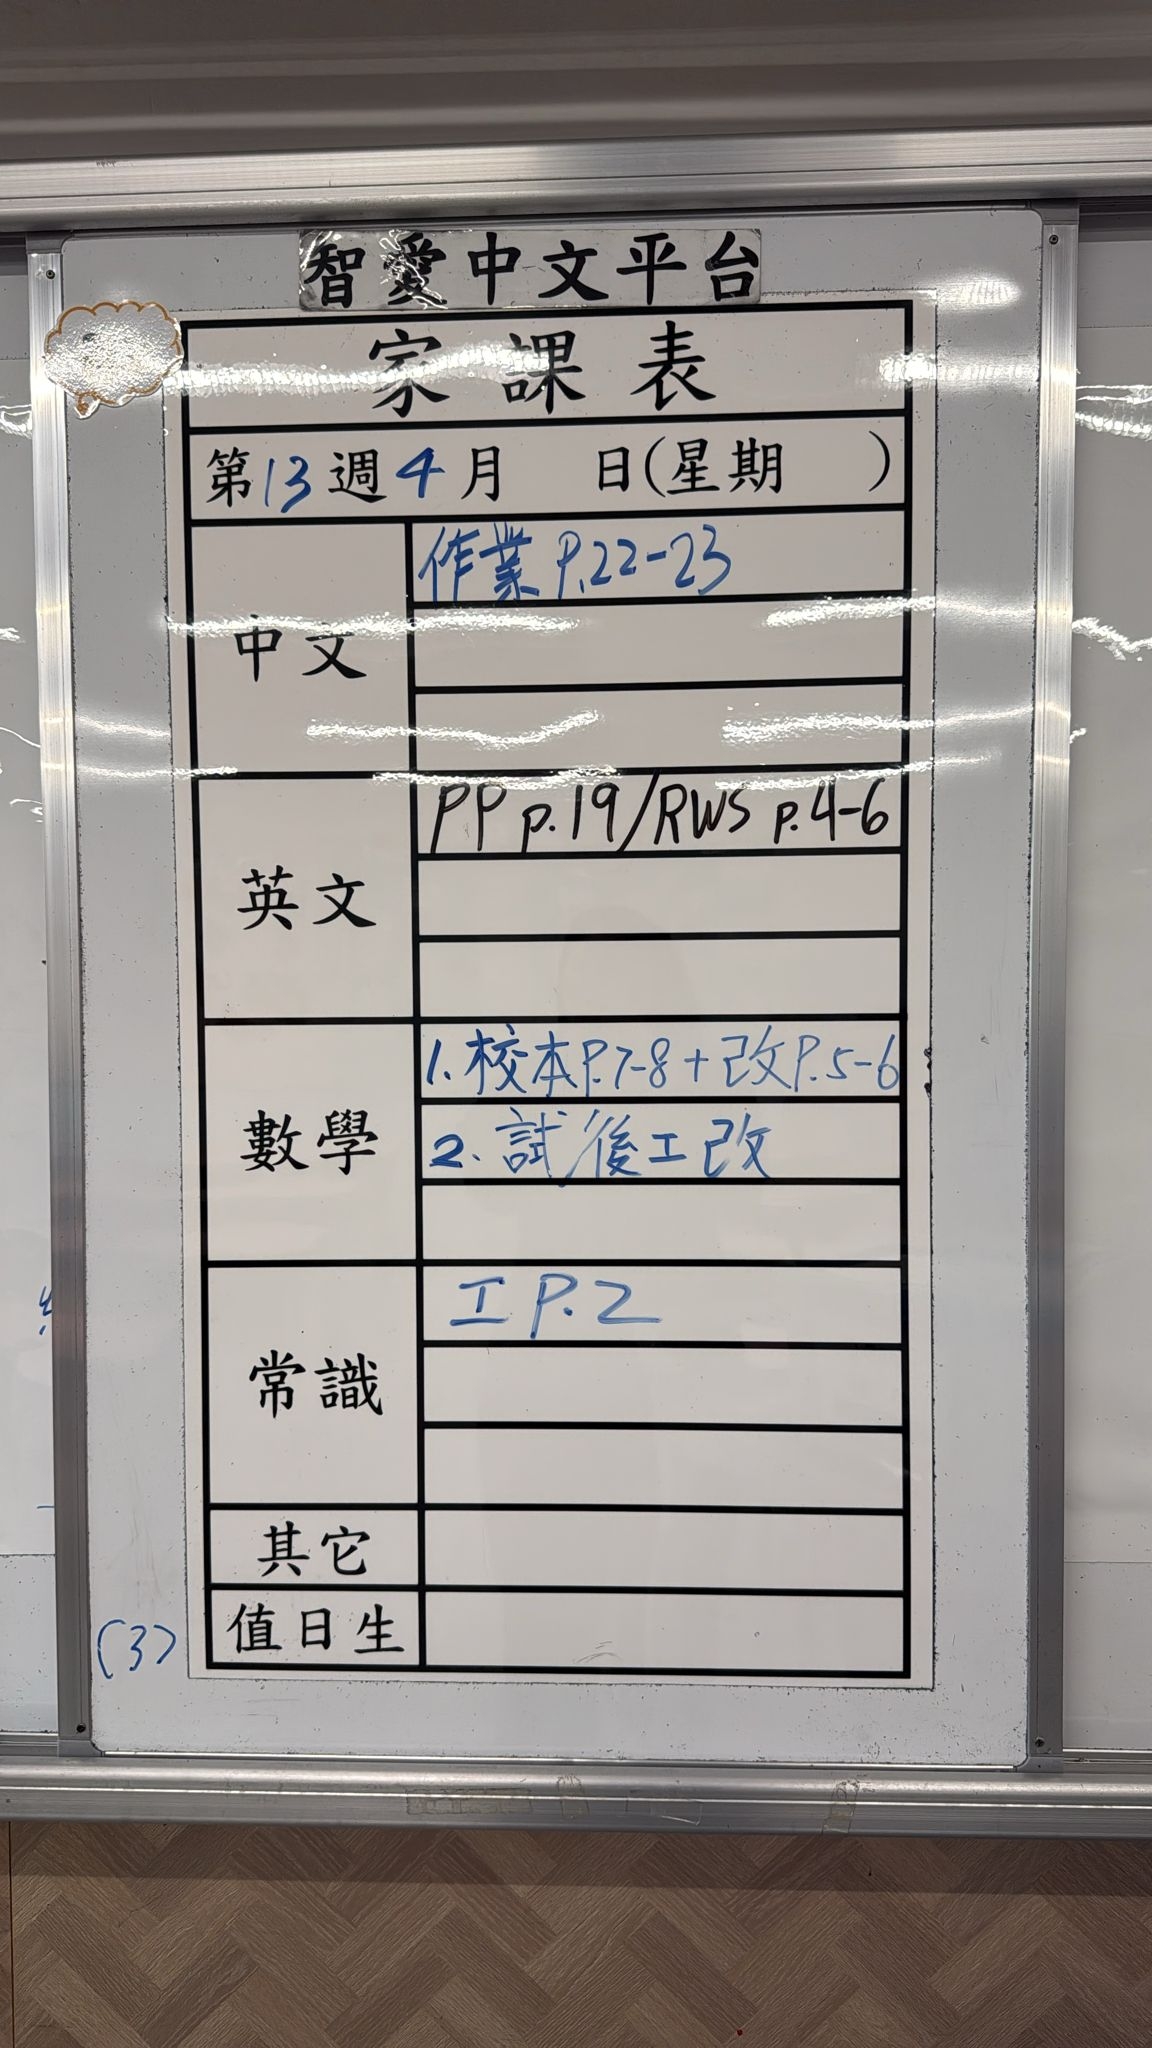 智愛中文平台
家課表
第13週4月 日(星期 )
中文
作業 P.22-23
英文
PP p.19/RWS p.4-6
數學
1.校本P.7-8+改P.5-6
2.試後工改
常識
工 P.2
其它
值日生
(3)